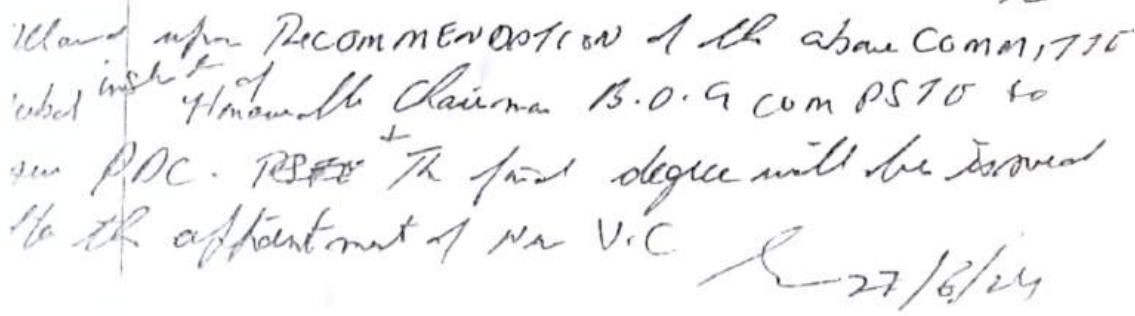 upon RECOMMENDATION of the above COMMITTE
of Honourable Chairman B.O.G cum PSTE to
PDC. The final degree will be issued
the appointment of New V.C
27/6/24